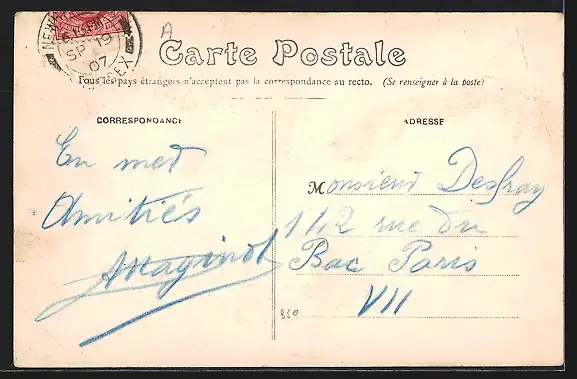 NEWH
SP 19
07
SSEX
A
Carte Postale
Tous les pays étrangers n'acceptent pas la correspondance au recto. (Se renseigner à la poste)
CORRESPONDANCE
ADRESSE
En mer
Amitiés
Monsieur Desfray
112 rue du
Bac Paris
VII